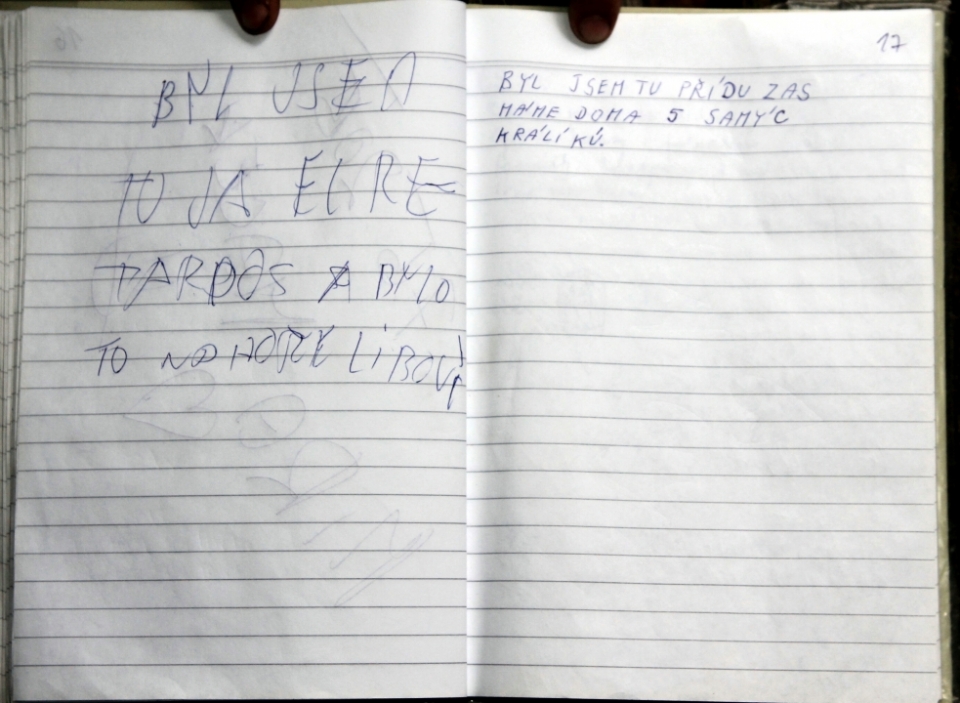 BYL JSEM
TU JÁ EL RE
TARDOS A BYLO
TO NA HOŘE LIBOVÝ
17
BYL JSEM TU PŘÍDU ZAS
MÁME DOMA 5 SAMÝC
KRÁLÍKŮ.